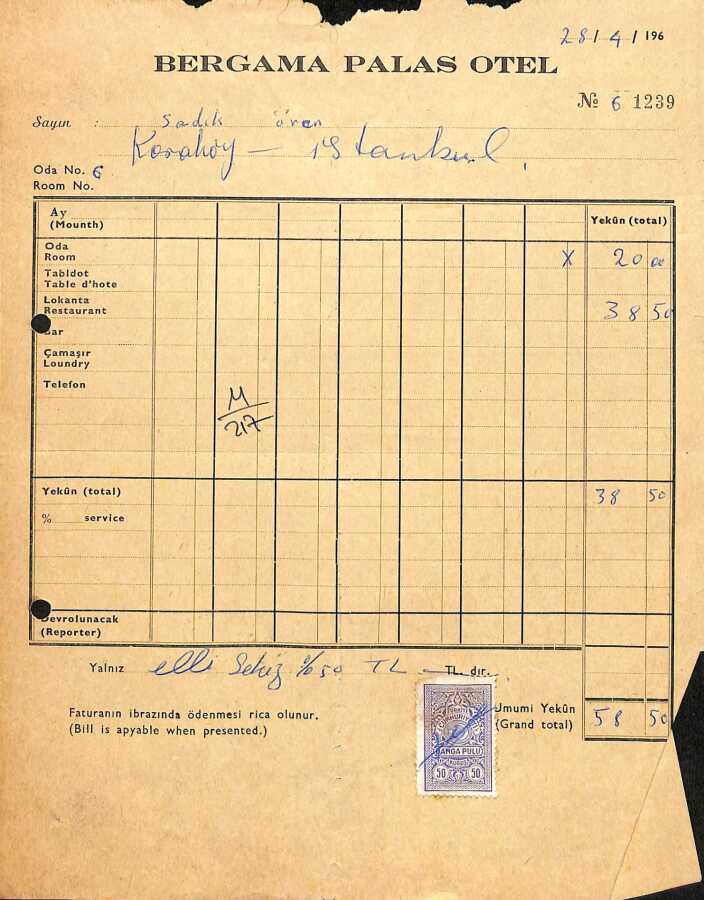 28/4/196
BERGAMA PALAS OTEL
№ 6 1239
Sayın : Sadık ören
Karaköy — istanbul.
Oda No. 6
Room No.
Ay
(Mounth)
Yekûn (total)
Oda
Room X 20 00
Tabldot
Table d'hote
Lokanta
Restaurant 38 50
Bar
Çamaşır
Loundry
Telefon
M
217
Yekûn (total) 38 50
% service
Devrolunacak
(Reporter)
Yalnız elli Sekiz %50 TL — TL. dır.
Faturanın ibrazında ödenmesi rica olunur.
(Bill is apyable when presented.)
Umumi Yekûn
(Grand total) 58 50
DAMGA PULU
KURUŞ
50 50